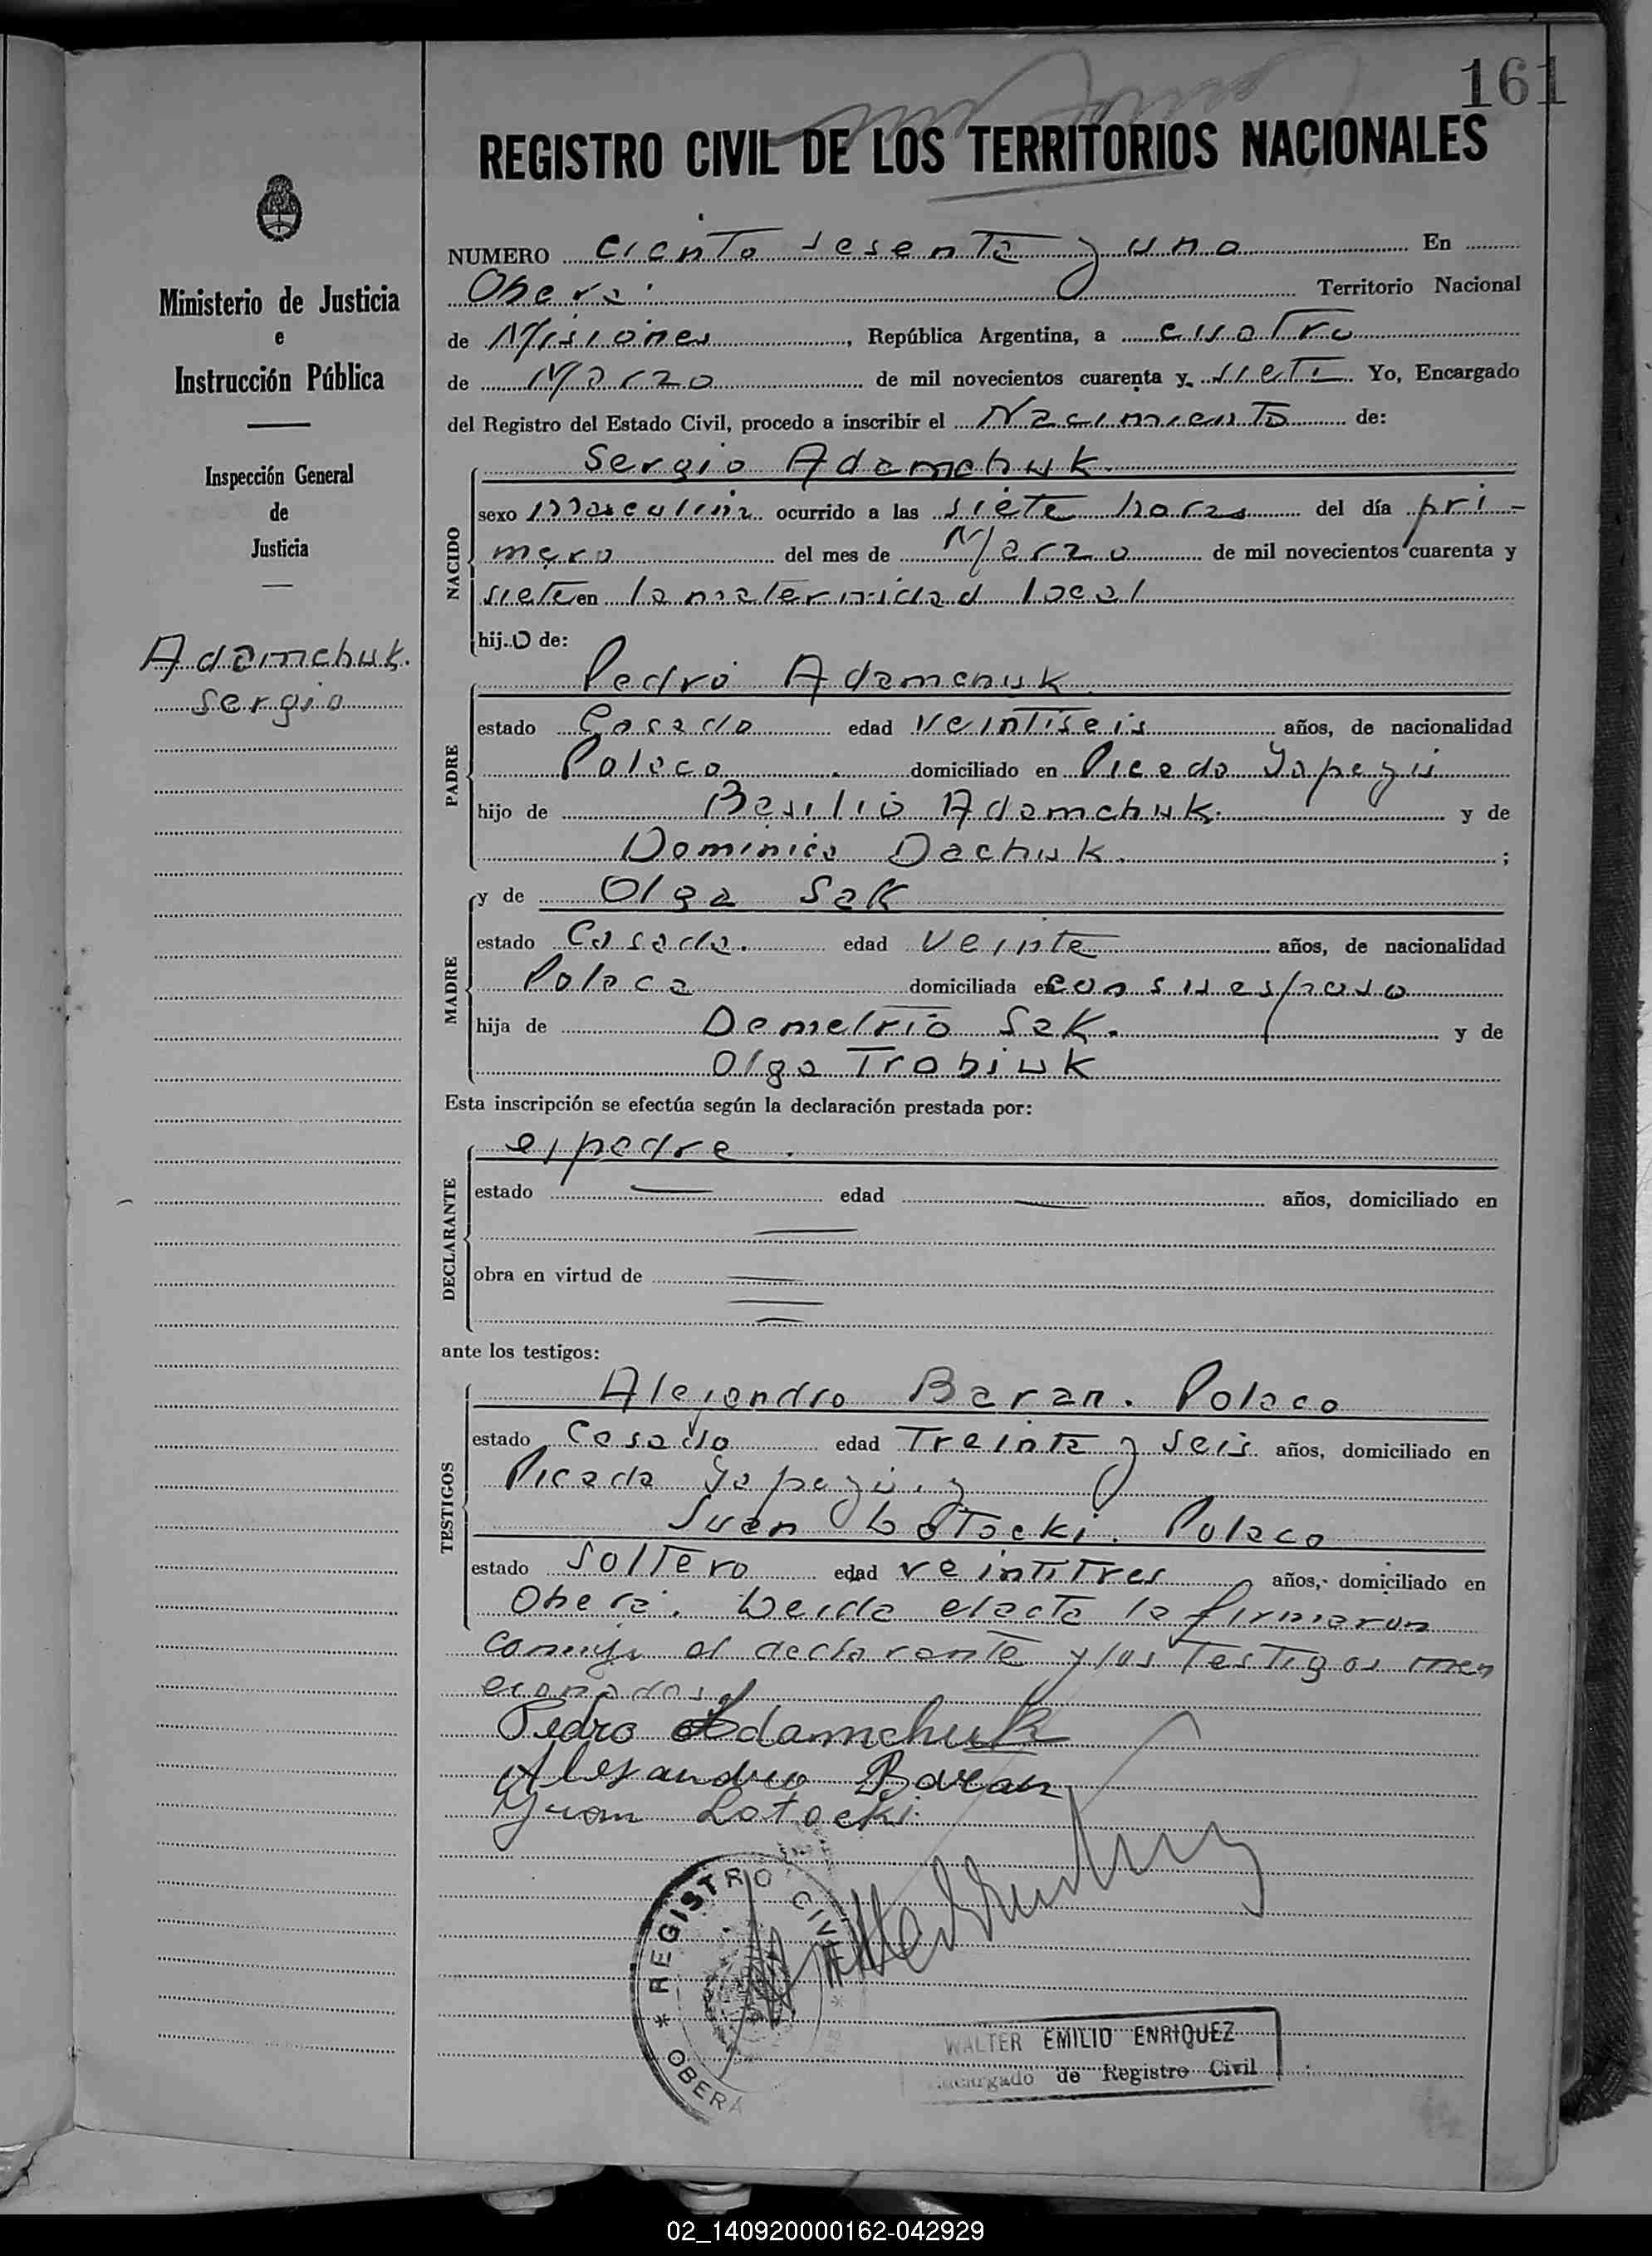 161
REGISTRO CIVIL DE LOS TERRITORIOS NACIONALES
Ministerio de Justicia
e
Instrucción Pública
Inspección General
de
Justicia
Adamchuk.
Sergio
NUMERO ciento sesenta y uno En
Oberá. Territorio Nacional
de Misiones, República Argentina, a cuatro
de Marzo de mil novecientos cuarenta y siete Yo, Encargado
del Registro del Estado Civil, procedo a inscribir el Nacimiento de:
NACIDO
Sergio Adamchuk.
sexo masculino ocurrido a las siete horas del día pri-
mero del mes de Marzo de mil novecientos cuarenta y
siete en la maternidad local
hijo de:
PADRE
Pedro Adamchuk.
estado Casado edad veintiseis años, de nacionalidad
Polaco domiciliado en Picada Yapeyú
hijo de Basilio Adamchuk. y de
Dominica Dachuk. ;
MADRE
y de Olga Sak
estado Casada. edad Veinte años, de nacionalidad
Polaca domiciliada en con su esposo
hija de Demetrio Sak. y de
Olga Trabiuk
Esta inscripción se efectúa según la declaración prestada por:
DECLARANTE
el padre.
estado edad años, domiciliado en
obra en virtud de
ante los testigos:
TESTIGOS
Alejandro Baran. Polaco
estado Casado edad Treinta y seis años, domiciliado en
Picada Yapeyú. y
Juan Lotocki. Polaco
estado Soltero edad veintitres años, domiciliado en
Oberá. Leida el acta la firmaron
conmigo el declarante y los testigos men
cionados
Pedro Adamchuk
Alejandro Baran
Juan Lotocki
REGISTRO CIVIL
* OBERA *
WALTER EMILIO ENRIQUEZ
Encargado de Registro Civil
02_140920000162-042929